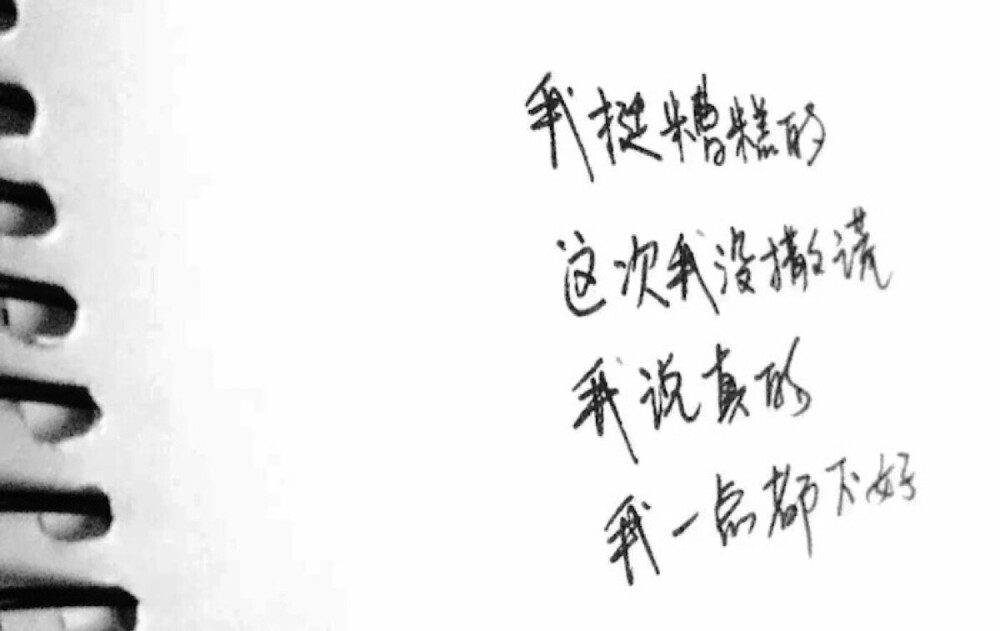 我挺糟糕的
这次我没撒谎
我说真的
我一点都不好